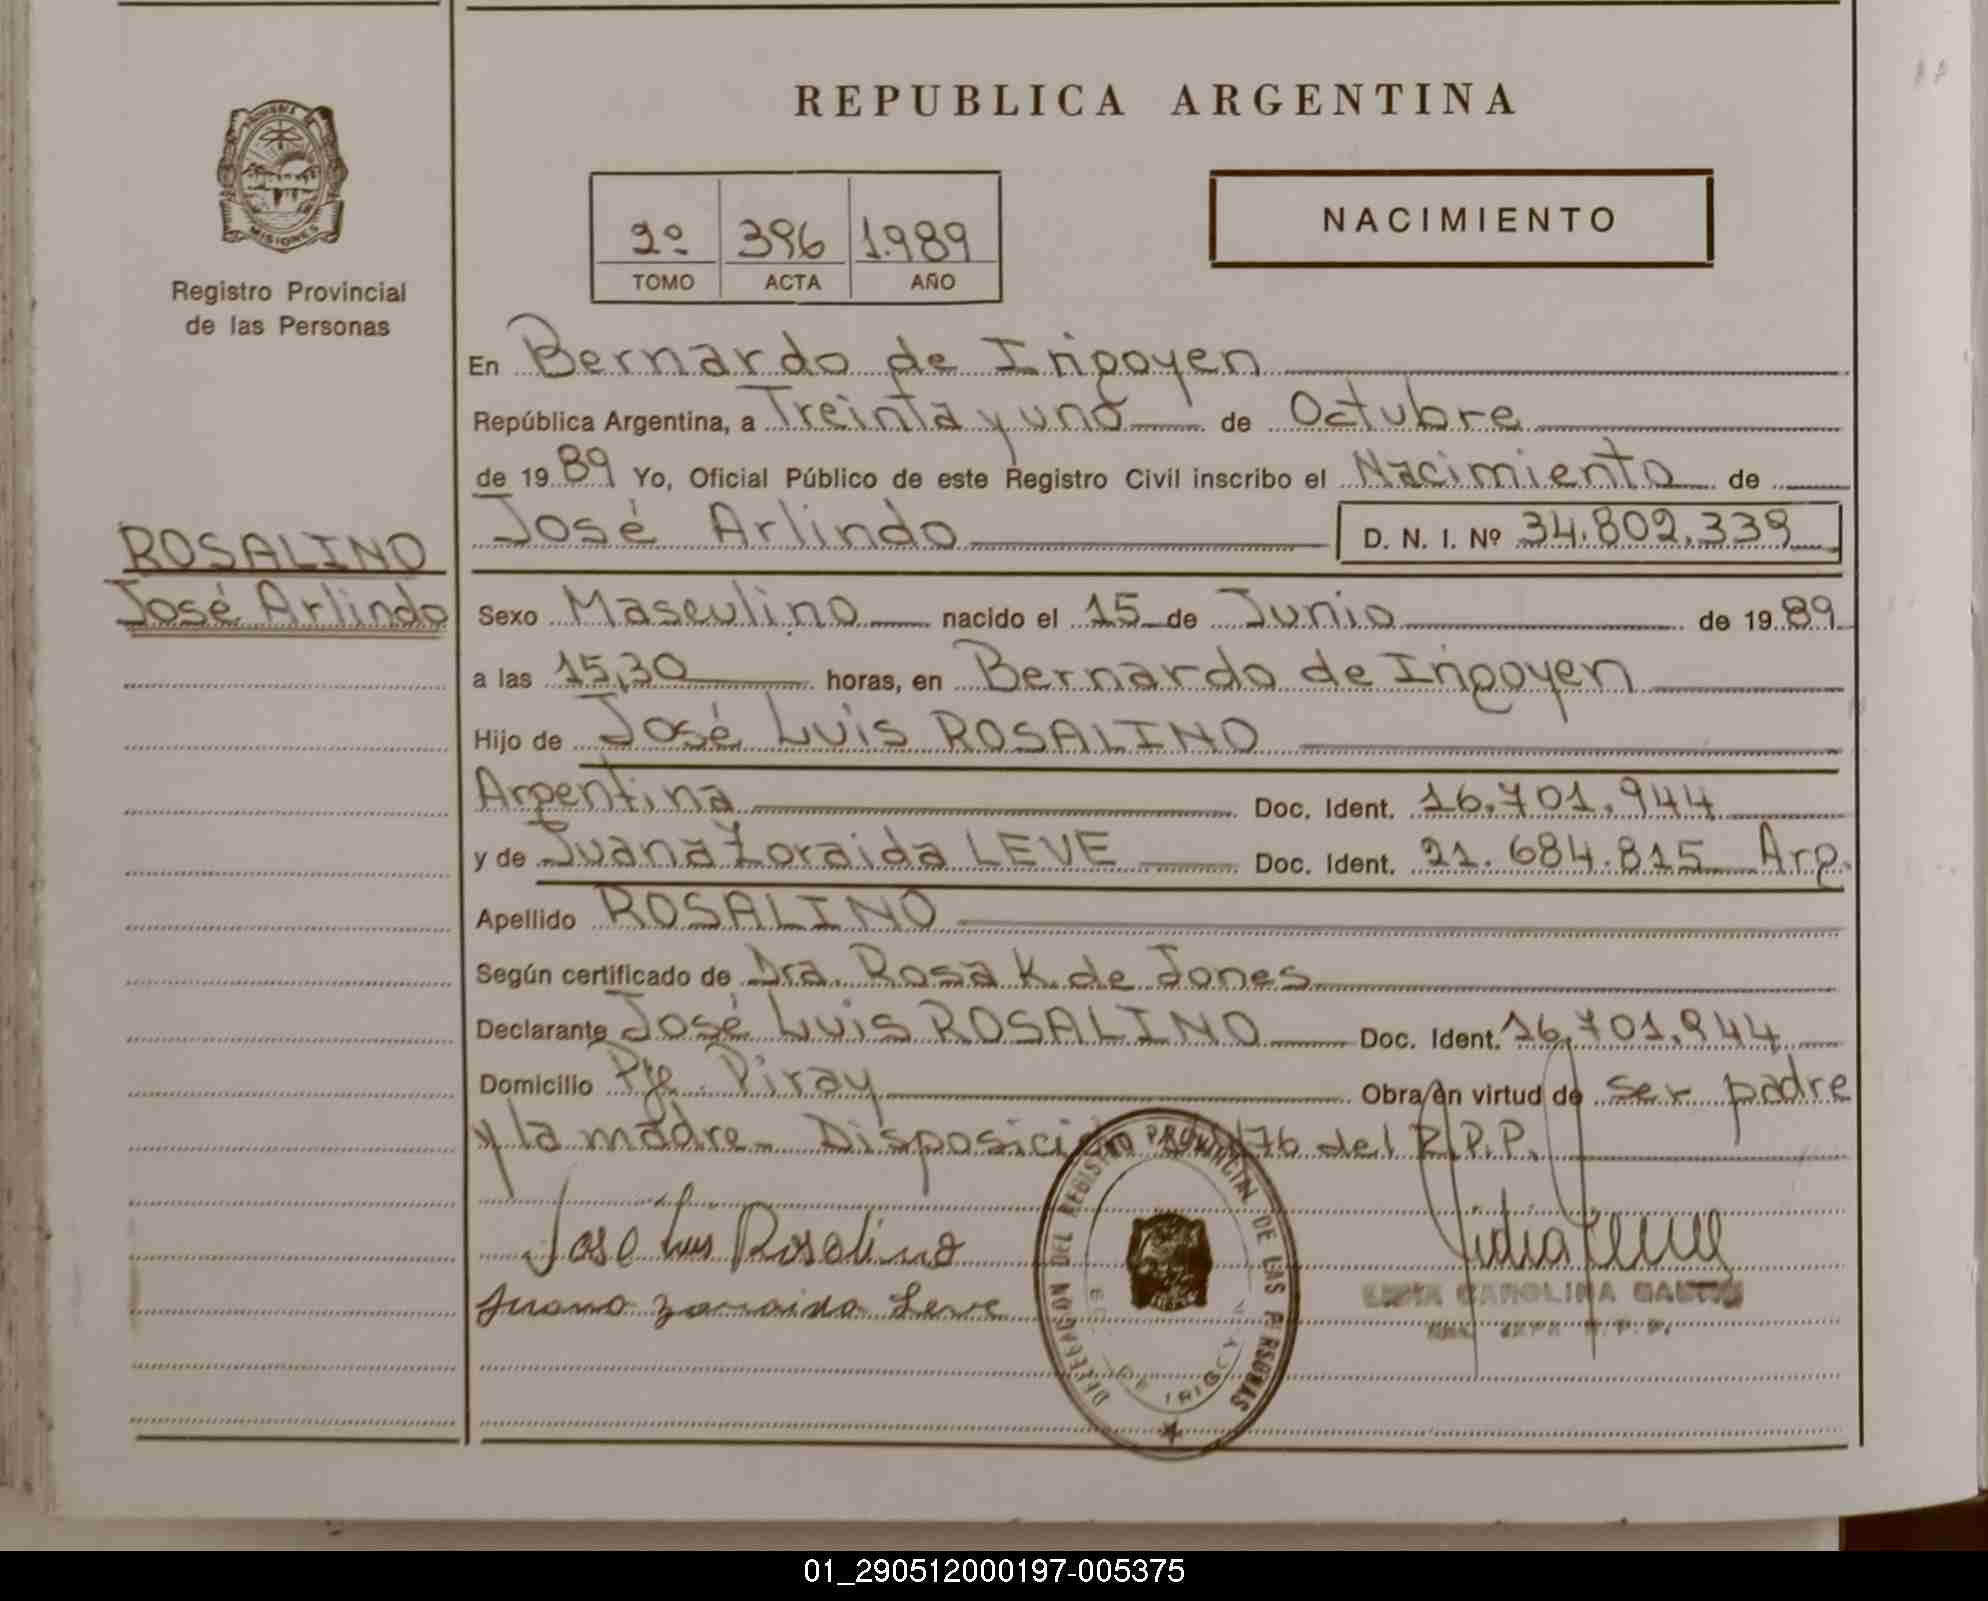 REPUBLICA ARGENTINA
MISIONES
Registro Provincial
de las Personas
2º 396 1.989
TOMO ACTA AÑO
NACIMIENTO
En Bernardo de Irigoyen
República Argentina, a Treinta y uno de Octubre
de 1989 Yo, Oficial Público de este Registro Civil inscribo el Nacimiento de
José Arlindo D. N. I. Nº 34.802.339
ROSALINO
José Arlindo
Sexo Masculino nacido el 15 de Junio de 1989
a las 15,30 horas, en Bernardo de Irigoyen
Hijo de José Luis ROSALINO
Argentina Doc. Ident. 16.701.944
y de Juana Zoraida LEVE Doc. Ident. 21.684.815 Arg.
Apellido ROSALINO
Según certificado de Dra. Rosa K. de Jones
Declarante José Luis ROSALINO Doc. Ident. 16.701.944
Domicilio Pje. Piray Obra en virtud de ser padre
y la madre. Disposición 76 del R.P.P.
Jose Luis Rosalino
Juana Zorraida Leve
DELEGACION DEL REGISTRO PROVINCIAL DE LAS PERSONAS
DE IRIGOY
CAROLINA
01_290512000197-005375